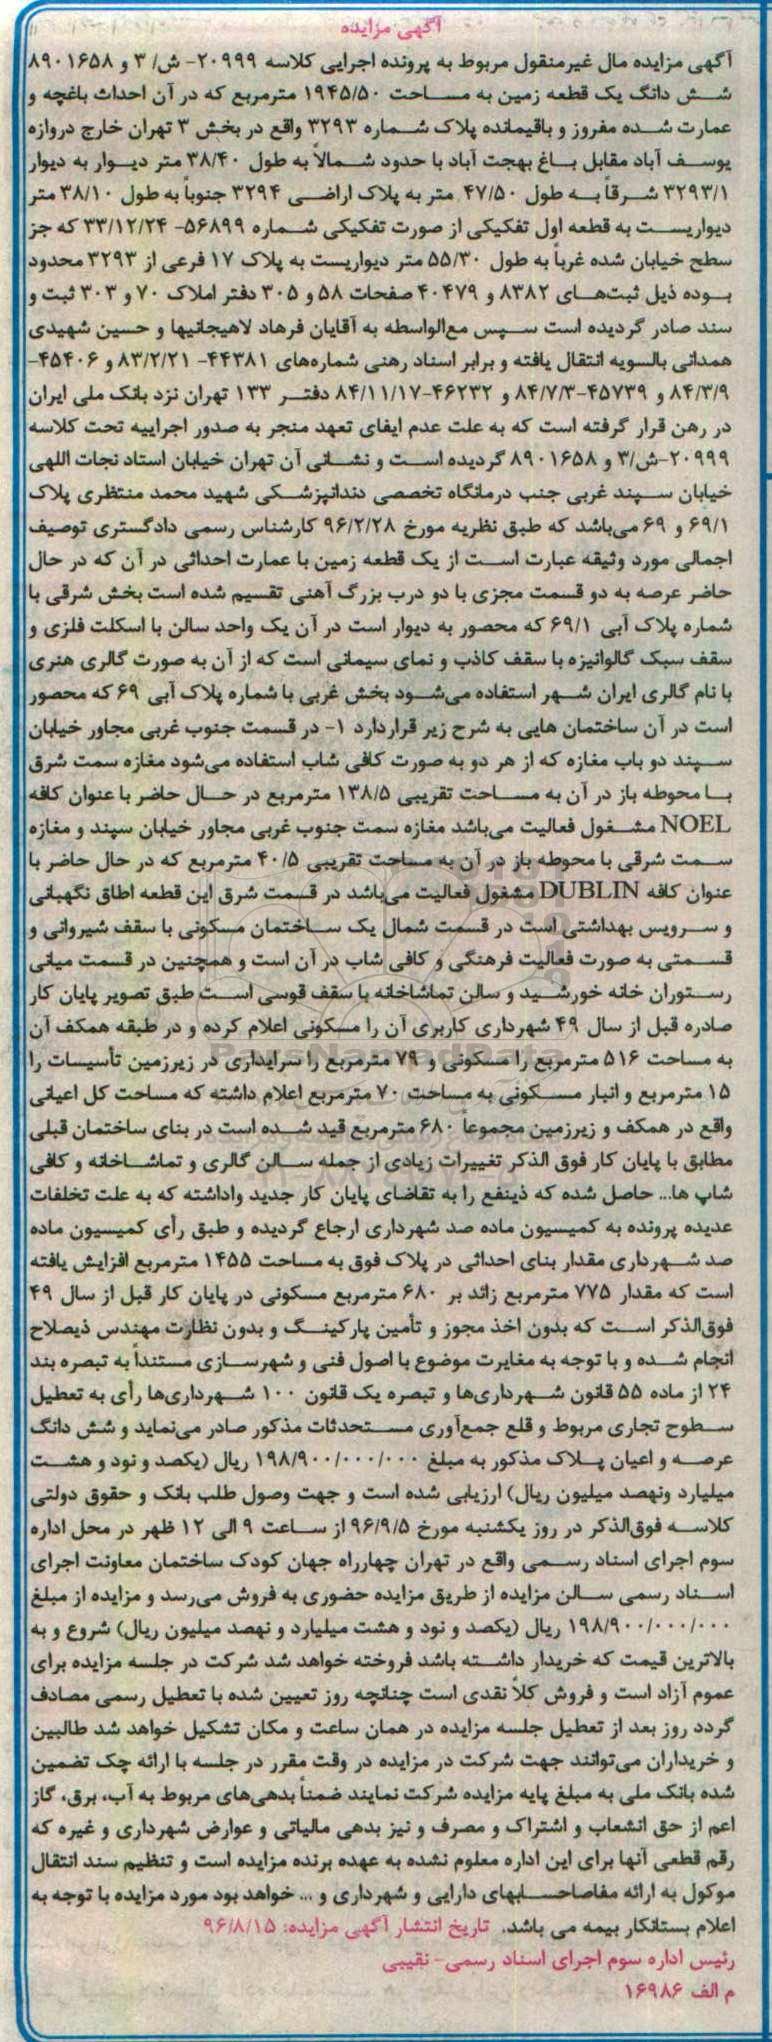 آگهی مزایده
آگهی مزایده مال غیرمنقول مربوط به پرونده اجرایی کلاسه ۲۰۹۹۹- ش/ ۳ و ۸۹۰۱۶۵۸
شش دانگ یک قطعه زمین به مساحت ۱۹۴۵/۵۰ مترمربع که در آن احداث باغچه و
عمارت شده مفروز و باقیمانده پلاک شماره ۳۲۹۳ واقع در بخش ۳ تهران خارج دروازه
یوسف آباد مقابل باغ بهجت آباد با حدود شمالاً به طول ۳۸/۴۰ متر دیوار به دیوار
۳۲۹۳/۱ شرقاً به طول ۴۷/۵۰ متر به پلاک اراضی ۳۲۹۴ جنوباً به طول ۳۸/۱۰ متر
دیواریست به قطعه اول تفکیکی از صورت تفکیکی شماره ۵۶۸۹۹- ۳۳/۱۲/۲۴ که جز
سطح خیابان شده غرباً به طول ۵۵/۳۰ متر دیواریست به پلاک ۱۷ فرعی از ۳۲۹۳ محدود
بوده ذیل ثبت‌های ۸۳۸۲ و ۴۰۴۷۹ صفحات ۵۸ و ۳۰۵ دفتر املاک ۷۰ و ۳۰۳ ثبت و
سند صادر گردیده است سپس مع‌الواسطه به آقایان فرهاد لاهیجانیها و حسین شهیدی
همدانی بالسویه انتقال یافته و برابر اسناد رهنی شماره‌های ۴۴۳۸۱- ۸۳/۲/۲۱ و ۴۵۴۰۶-
۸۴/۳/۹ و ۴۵۷۳۹-۸۴/۷/۳ و ۴۶۲۳۲-۸۴/۱۱/۱۷ دفتر ۱۳۳ تهران نزد بانک ملی ایران
در رهن قرار گرفته است که به علت عدم ایفای تعهد منجر به صدور اجراییه تحت کلاسه
۲۰۹۹۹-ش/۳ و ۸۹۰۱۶۵۸ گردیده است و نشانی آن تهران خیابان استاد نجات اللهی
خیابان سپند غربی جنب درمانگاه تخصصی دندانپزشکی شهید محمد منتظری پلاک
۶۹/۱ و ۶۹ می‌باشد که طبق نظریه مورخ ۹۶/۲/۲۸ کارشناس رسمی دادگستری توصیف
اجمالی مورد وثیقه عبارت است از یک قطعه زمین با عمارت احداثی در آن که در حال
حاضر عرصه به دو قسمت مجزی با دو درب بزرگ آهنی تقسیم شده است بخش شرقی با
شماره پلاک آبی ۶۹/۱ که محصور به دیوار است در آن یک واحد سالن با اسکلت فلزی و
سقف سبک گالوانیزه با سقف کاذب و نمای سیمانی است که از آن به صورت گالری هنری
با نام گالری ایران شهر استفاده می‌شود بخش غربی با شماره پلاک آبی ۶۹ که محصور
است در آن ساختمان هایی به شرح زیر قراردارد ۱- در قسمت جنوب غربی مجاور خیابان
سپند دو باب مغازه که از هر دو به صورت کافی شاب استفاده می‌شود مغازه سمت شرق
با محوطه باز در آن به مساحت تقریبی ۱۳۸/۵ مترمربع در حال حاضر با عنوان کافه
NOEL مشغول فعالیت می‌باشد مغازه سمت جنوب غربی مجاور خیابان سپند و مغازه
سمت شرقی با محوطه باز در آن به مساحت تقریبی ۴۰/۵ مترمربع که در حال حاضر با
عنوان کافه DUBLIN مشغول فعالیت می‌باشد در قسمت شرق این قطعه اطاق نگهبانی
و سرویس بهداشتی است در قسمت شمال یک ساختمان مسکونی با سقف شیروانی و
قسمتی به صورت فعالیت فرهنگی و کافی شاب در آن است و همچنین در قسمت میانی
رستوران خانه خورشید و سالن تماشاخانه با سقف قوسی است طبق تصویر پایان کار
صادره قبل از سال ۴۹ شهرداری کاربری آن را مسکونی اعلام کرده و در طبقه همکف آن
به مساحت ۵۱۶ مترمربع را مسکونی و ۷۹ مترمربع را سرایداری در زیرزمین تأسیسات را
۱۵ مترمربع و انبار مسکونی به مساحت ۷۰ مترمربع اعلام داشته که مساحت کل اعیانی
واقع در همکف و زیرزمین مجموعاً ۶۸۰ مترمربع قید شده است در بنای ساختمان قبلی
مطابق با پایان کار فوق الذکر تغییرات زیادی از جمله سالن گالری و تماشاخانه و کافی
شاپ ها... حاصل شده که ذینفع را به تقاضای پایان کار جدید واداشته که به علت تخلفات
عدیده پرونده به کمیسیون ماده صد شهرداری ارجاع گردیده و طبق رأی کمیسیون ماده
صد شهرداری مقدار بنای احداثی در پلاک فوق به مساحت ۱۴۵۵ مترمربع افزایش یافته
است که مقدار ۷۷۵ مترمربع زائد بر ۶۸۰ مترمربع مسکونی در پایان کار قبل از سال ۴۹
فوق‌الذکر است که بدون اخذ مجوز و تأمین پارکینگ و بدون نظارت مهندس ذیصلاح
انجام شده و با توجه به مغایرت موضوع با اصول فنی و شهرسازی مستنداً به تبصره بند
۲۴ از ماده ۵۵ قانون شهرداری‌ها و تبصره یک قانون ۱۰۰ شهرداری‌ها رأی به تعطیل
سطوح تجاری مربوط و قلع جمع‌آوری مستحدثات مذکور صادر می‌نماید و شش دانگ
عرصه و اعیان پلاک مذکور به مبلغ ۱۹۸/۹۰۰/۰۰۰/۰۰۰ ریال (یکصد و نود و هشت
میلیارد ونهصد میلیون ریال) ارزیابی شده است و جهت وصول طلب بانک و حقوق دولتی
کلاسه فوق‌الذکر در روز یکشنبه مورخ ۹۶/۹/۵ از ساعت ۹ الی ۱۲ ظهر در محل اداره
سوم اجرای اسناد رسمی واقع در تهران چهارراه جهان کودک ساختمان معاونت اجرای
اسناد رسمی سالن مزایده از طریق مزایده حضوری به فروش می‌رسد و مزایده از مبلغ
۱۹۸/۹۰۰/۰۰۰/۰۰۰ ریال (یکصد و نود و هشت میلیارد و نهصد میلیون ریال) شروع و به
بالاترین قیمت که خریدار داشته باشد فروخته خواهد شد شرکت در جلسه مزایده برای
عموم آزاد است و فروش کلاً نقدی است چنانچه روز تعیین شده با تعطیل رسمی مصادف
گردد روز بعد از تعطیل جلسه مزایده در همان ساعت و مکان تشکیل خواهد شد طالبین
و خریداران می‌توانند جهت شرکت در مزایده در وقت مقرر در جلسه با ارائه چک تضمین
شده بانک ملی به مبلغ پایه مزایده شرکت نمایند ضمناً بدهی‌های مربوط به آب، برق، گاز
اعم از حق انشعاب و اشتراک و مصرف و نیز بدهی مالیاتی و عوارض شهرداری و غیره که
رقم قطعی آنها برای این اداره معلوم نشده به عهده برنده مزایده است و تنظیم سند انتقال
موکول به ارائه مفاصاحسابهای دارایی و شهرداری و ... خواهد بود مورد مزایده با توجه به
اعلام بستانکار بیمه می باشد. تاریخ انتشار آگهی مزایده: ۹۶/۸/۱۵
رئیس اداره سوم اجرای اسناد رسمی- نقیبی
م الف ۱۶۹۸۶